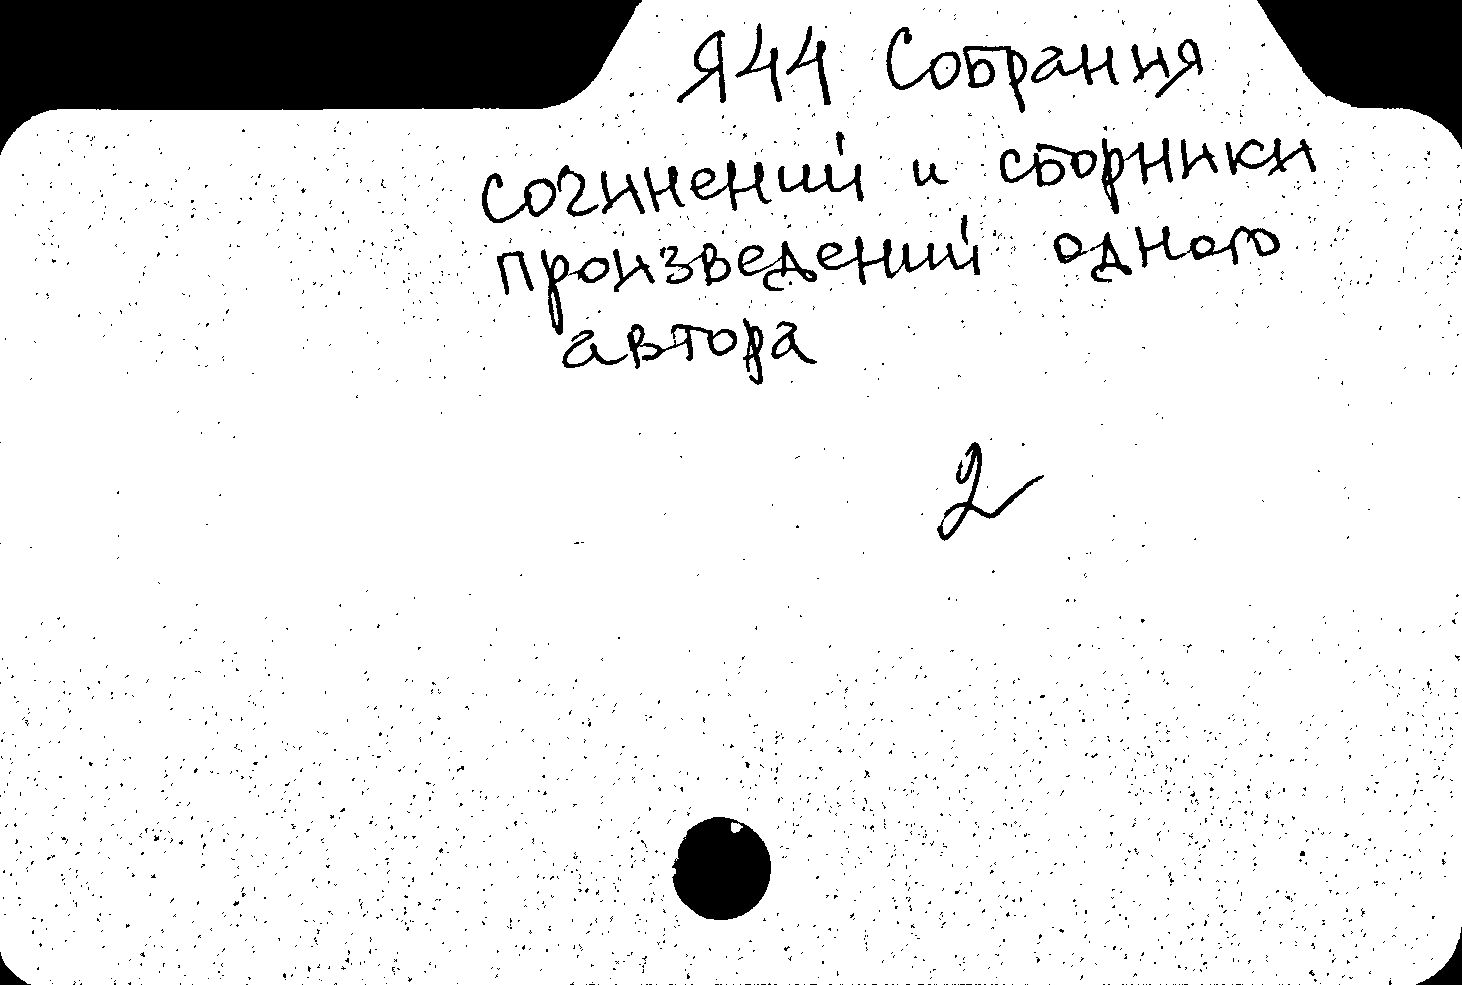 Я44 Собрания
сочинений и сборники
произведений одного
автора
2